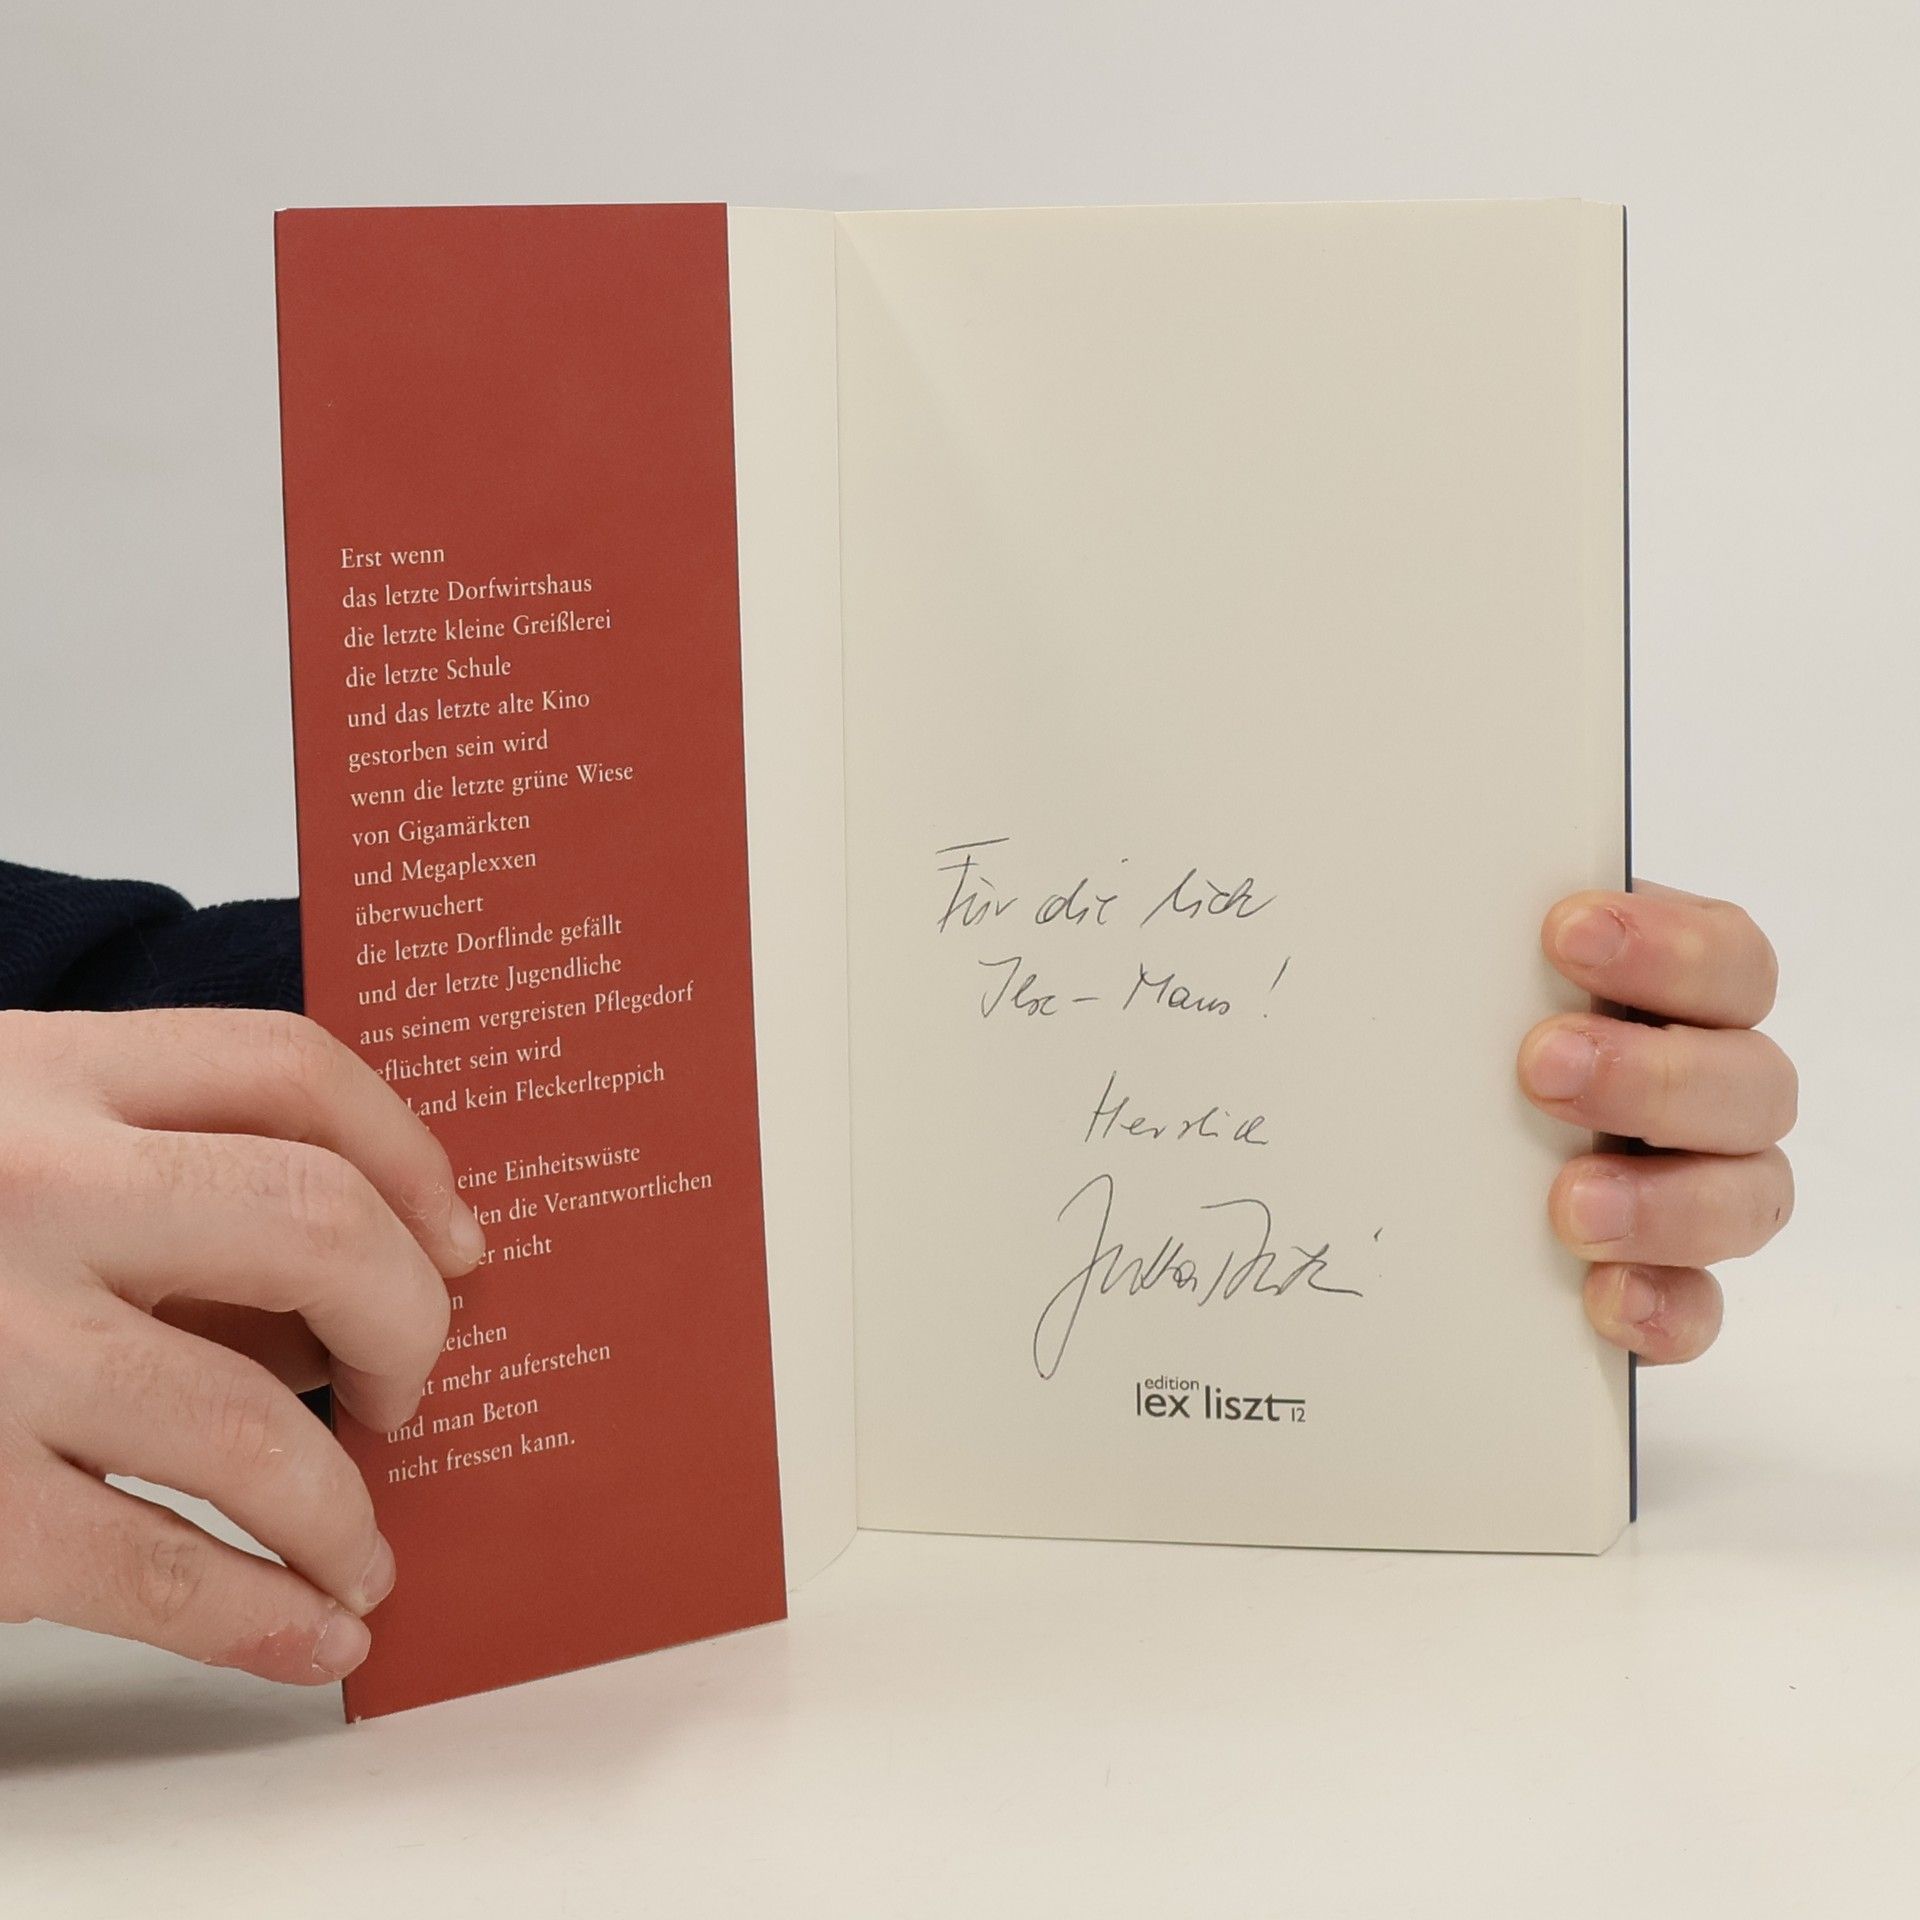 Erst wenn
das letzte Dorfwirtshaus
die letzte kleine Greißlerei
die letzte Schule
und das letzte alte Kino
gestorben sein wird
wenn die letzte grüne Wiese
von Gigamärkten
und Megaplexxen
überwuchert
die letzte Dorflinde gefällt
und der letzte Jugendliche
aus seinem vergreisten Pflegedorf
eflüchtet sein wird
Land kein Fleckerlteppich
eine Einheitswüste
den die Verantwortlichen
er nicht
n
eichen
t mehr auferstehen
und man Beton
nicht fressen kann.
Für die liebe
Ilse - Maus!
Herzlich
Jutta
edition
lex liszt 12